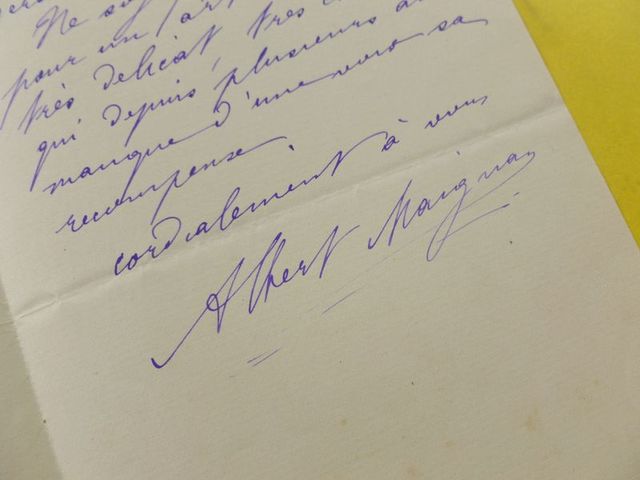 Ne
pour un
très délicat, très
qui depuis plusieurs
manque d'une voix sa
recompense.
cordialement à vous
Albert Maignan